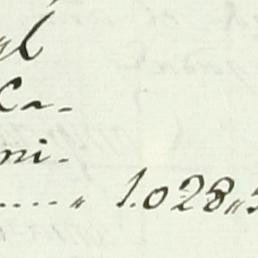 al
Ca-
ni-
....." 1.028"